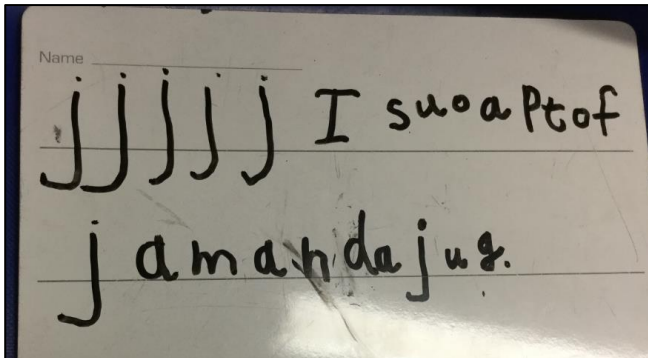 Name
j j j j j I suo a Pt of
jam and a jug.